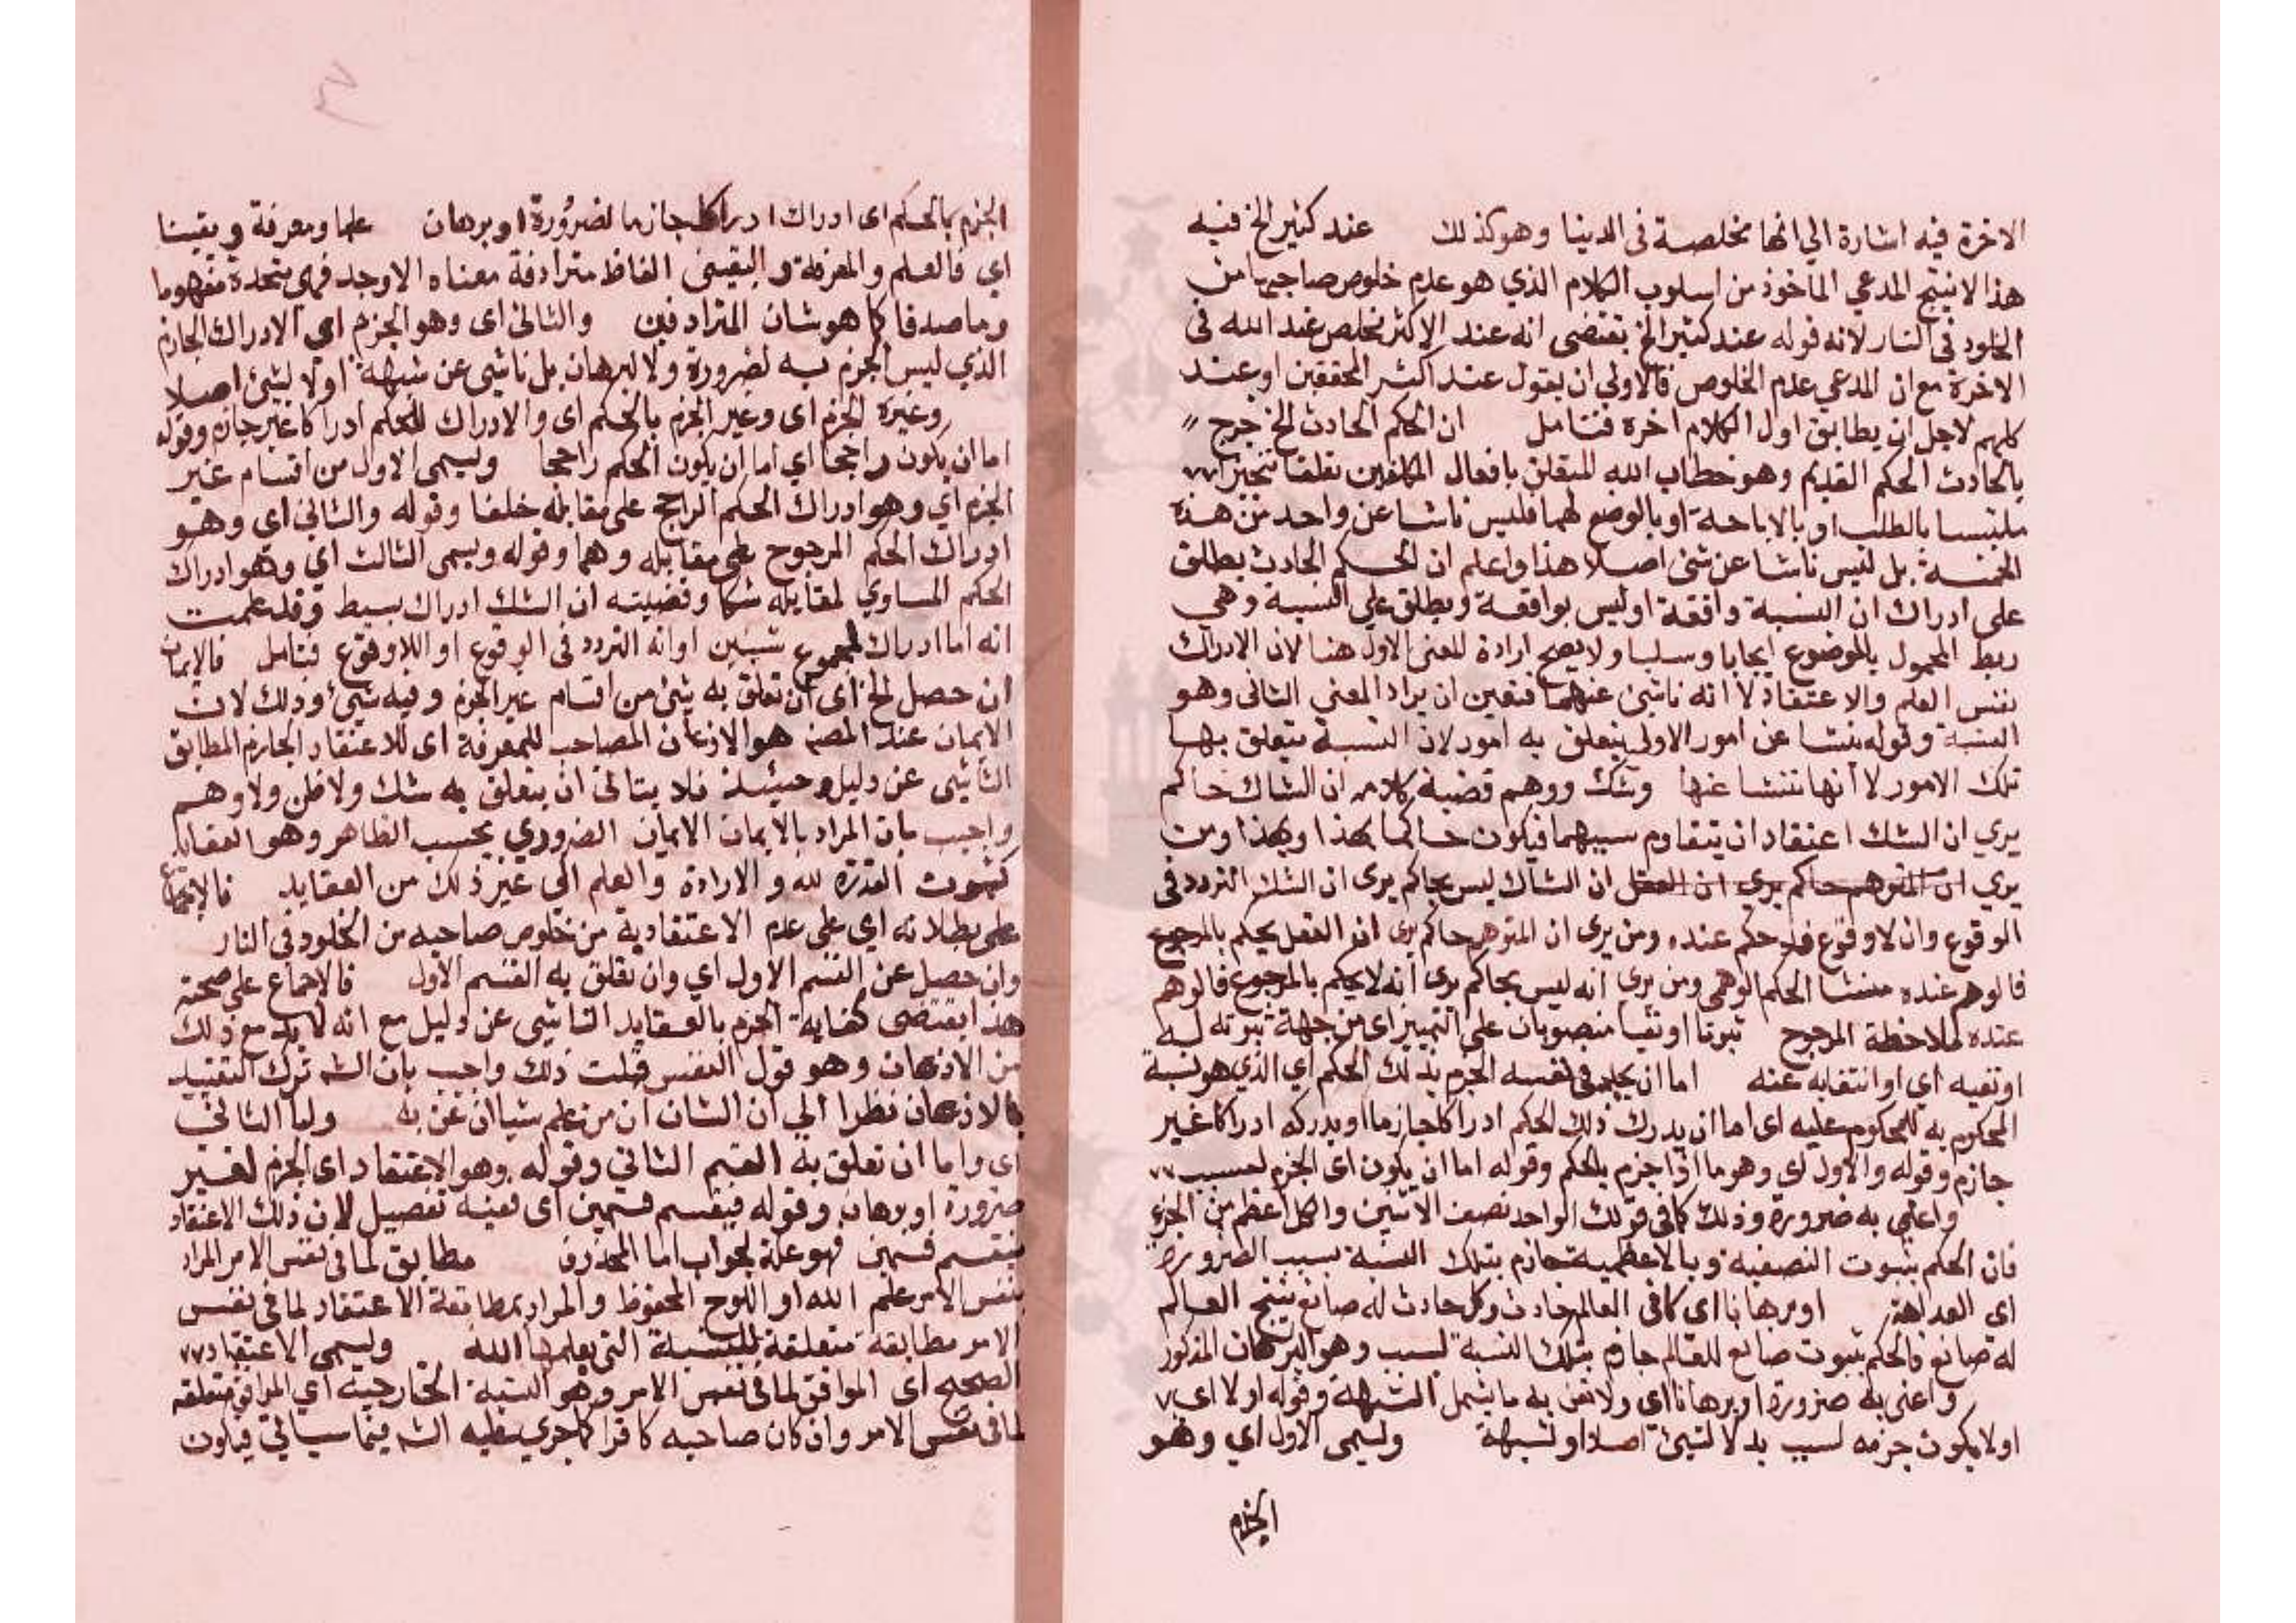 الاخرة فيه اشارة الي انها مخلصة في الدينا وهو كذلك عند كثير الخ فيه
هذا لا ينتج المدعي الماخوذ من اسلوب الكلام الذي هو عدم خلوص صاحبها من
الخلود في النار لانه قوله عند كثير الخ يقتضى انه عند الاكثر مخلص عند الله في
الاخرة مع ان المدعي عدم الخلوص فالاولي ان يقول عند اكثر المحققين او عند
كلهم لاجل ان يطابق اول الكلام اخره فتامل ان الحكم الحادث الخ خرج
بالحادث الحكم القديم وهو خطاب الله المتعلق بافعال المكلفين تعلقا تنجيزا
ملتبسا بالطلب او بالاباحة او بالوضع لهما فليس ناشا عن واحد من هذه
الخمسة بل ليس ناشا عن شئ اصلا هذا واعلم ان الحكم الحادث يطلق
على ادراك ان النسبة واقعة او ليس بواقعة ويطلق علي النسبة وهي
ربط المحمول بالموضوع ايجابا وسلبا ولا يصح ارادة المعنى الاول هنا لان الادراك
نفس العلم والاعتقاد لا انه ناشئ عنهما فتعين ان يراد المعنى الثاني وهو
النسبة وقوله ينشا عن امور الاولى يتعلق به امور لان النسبة يتعلق بها
تلك الامور لا انها تنشا عنها وشك ووهم قضية كلامه ان الشاك حاكم
يري ان الشك اعتقاد ان يتقاوم سببهما فيكون حاكما بهذا وبهذا ومن
يري ان المتوهم حاكم يري ان العقل ان الشاك ليس بحاكم يرى ان الشك التردد في
الوقوع وان لا وقوع فلا حكم عنده ومن يرى ان المتوهم حاكم يرى ان العقل يحكم بالمرجوح
فالوهم عنده منشا الحكم الوهمي ومن يرى انه ليس بحاكم يرى انه لا يحكم بالمرجوح فالوهم
عنده ملاحظة المرجوح ثبوتا او نفيا منصوبان على التمييز اى من جهة ثبوته له
او نفيه اي او انتفايه عنه اما ان يجد في نفسه الجزم بذلك الحكم اي الذي هو نسبة
المحكوم به للمحكوم عليه اى اما ان يدرك ذلك الحكم ادراكا جازما او يدركه ادراكا غير
جازم وقوله والاول اي وهو ما اذا جزم بالحكم وقوله اما ان يكون اى الجزم لسبب
واعني به ضرورة وذلك كما في قولك الواحد نصف الاثنين والكل اعظم من الجزء
فان الحكم بثبوت النصفية وبالاعظمية جازم بتلك النسبة بسبب الضرورة
اى البداهة او برهانا اى كما في العالم حادث وكل حادث له صانع ينتج العالم
له صانع فالحكم بثبوت صانع للعالم جازم بتلك النسبة لسبب وهو البرهان المذكور
واعنى به ضرورة او برهانا اى ولا نعني به ما يشمل الشبهة وقوله او لا اي
او لا يكون جزمه لسبب بد لا لشئ اصلا او لشبهة ويسمى الاول اي وهو
الجزم
الجزم بالحكم اى ادراك ادراكا جازما لضرورة او برهان علما ومعرفة ويقينا
اي فالعلم والمعرفة واليقين الفاظ مترادفة معناه الاوحد فهى متحدة مفهوما
وما صدقا كما هو شان المترادفين والثاني اى وهو الجزم اي الادراك الجازم
الذي ليس الجزم به لضرورة ولا لبرهان بل ناشي عن شبهة اولا لشئ اصلا
وغيره الجزم اى وغير الجزم بالحكم اى والادراك للحكم ادراكا غير جازم وقوله
اما ان يكون راجحا اي اما ان يكون الحكم راجحا ويسمى الاول من اقسام غير
الجزم اي وهو ادراك الحكم الراجح على مقابله ظنا وقوله والثاني اى وهو
ادراك الحكم المرجوح على مقابله وهما وقوله ويسمى الثالث اي وهو ادراك
الحكم المساوي لمقابله شكا وقضيته ان الشك ادراك بسيط وقد علمت
انه اما ادراك لمجموع شيئين او انه التردد في الوقوع او اللاوقوع فتامل فالايمان
ان حصل الخ اى ان تعلق به شئ من اقسام غير الجزم وفيه شئ وذلك لان
الايمان عند المصنف هو الاذعان المصاحب للمعرفة اى للاعتقاد الجازم المطابق
الناشي عن دليل وحينئذ فلا يتاتى ان يتعلق به شك ولا ظن ولا وهم
واجيب بان المراد بالايمان الايمان الضروري بحسب الظاهر وهو العقايد
كثبوت القدرة لله والارادة والعلم الى غير ذلك من العقايد فالاجماع
على بطلانه اي على عدم الاعتقادية من خلوص صاحبه من الخلود في النار
وان حصل عن القسم الاول اي وان تعلق به القسم الاول فالاجماع على صحته
هذا يقتضى كفاية الجزم بالعقايد الناشي عن دليل مع انه لا بد مع ذلك
من الاذعان وهو قول النفس قبلت ذلك واجيب بان الشه ترك التقييد
بالاذعان نظرا الي ان الشان ان من علم شيا اذعن به واما الثاني
اى واما ان تعلق به القسم الثاني وقوله وهو الاعتقاد اى الجزم لغير
ضرورة او برهان وقوله فينقسم قسمين اى ففيه تفصيل لان ذلك الاعتقاد
ينقسم قسمين فهو علة لجواب اما المحذوف مطابق لما في نفس الامر المراد
بنفس الامر علم الله او اللوح المحفوظ والمراد بمطابقة الاعتقاد لما في نفس
الامر مطابقة متعلقة للنسبة التي يعلمها الله ويسمى الاعتقاد
الصحيح اى الموافق لما في نفس الامر وهو النسبة الخارجية اي الموافق متعلقه
لما في نفس الامر وان كان صاحبه كافرا كما جرى عليه الشه فيما سياتي فيكون